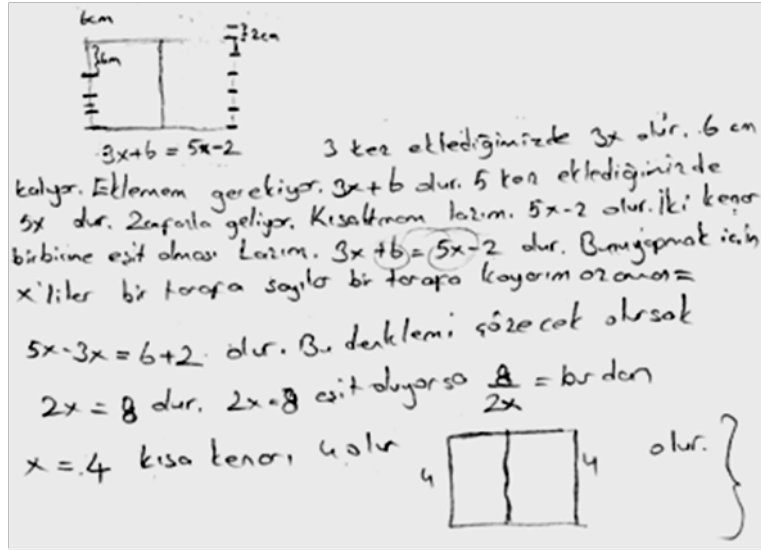 6cm
}2cm
}6m
3x+6 = 5x-2
3 kez eklediğimizde 3x olur. 6 cm
kalıyor. Eklemem gerekiyor. 3x+6 olur. 5 kez eklediğimizde
5x olur. 2cm fazla geliyor. Kısaltmam lazım. 5x-2 olur. İki kenar
birbirine eşit olması lazım. 3x+6=5x-2 olur. Bunu yapmak için
x'liler bir tarafa sayılar bir tarafa koyarım o zaman=
5x-3x=6+2 olur. Bu denklemi çözecek olursak
2x=8 olur. 2x=8 eşit oluyorsa 8/2x = burdan
x=4 kısa kenarı 4 olur
4 4 olur.